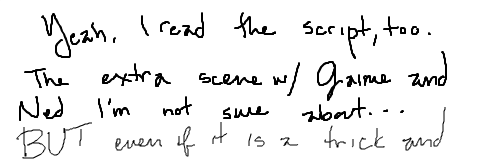 Yeah, I read the script, too.
The extra scene w/ Gaime and
Ned I'm not sure about...
BUT even if it is a trick and